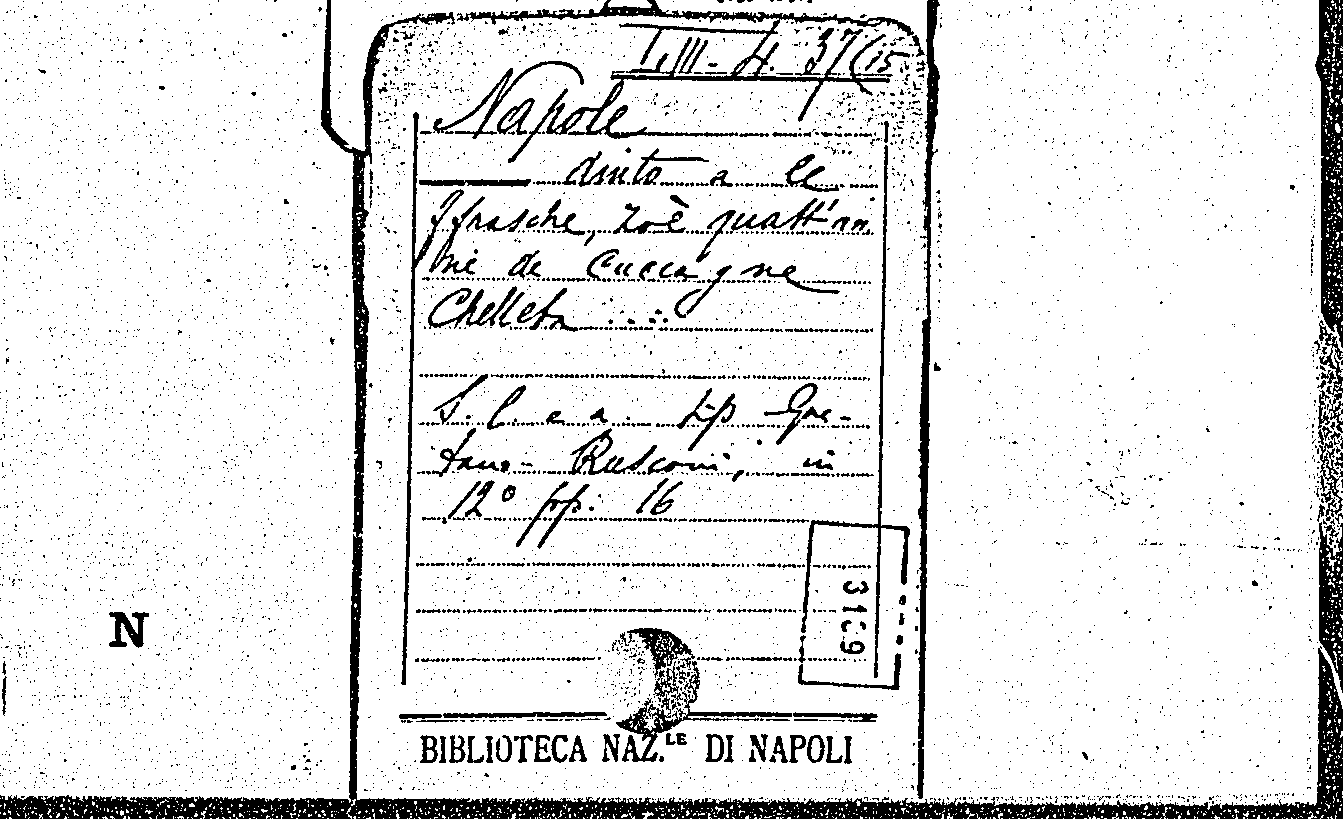 L.III-4. 37(15
Napole
—— dinto a le
ffrasche, zoè quatt'ri
me de Cuccagne
Chelleta ....
S. l. e a. tip Gae-
tano Rusconi, in
12° pp. 16
3169
BIBLIOTECA NAZ.LE DI NAPOLI
N